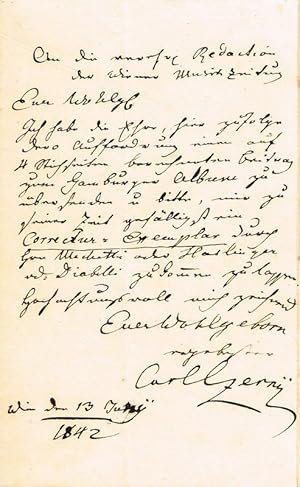 An die verehrl Redaction
der Wiener Musik Zeitung
Euer Wohlgb
Ich habe die Ehre, hier zufolge
dero Aufforderung einen auf
4 Stichseiten berechneten Beitrag
zum Hamburger Album zu
übersenden u bitte, mir zu
seiner Zeit gefälligst ein
Correctur=Exemplar durch
Hrn Mechetti oder Haslinger
od. Diabelli zukommen zu lassen.
Hochachtungsvoll mich zeichnend
Euer Wohlgeborn
ergebenster
Carl Czerny
Wien den 13 Juny
1842